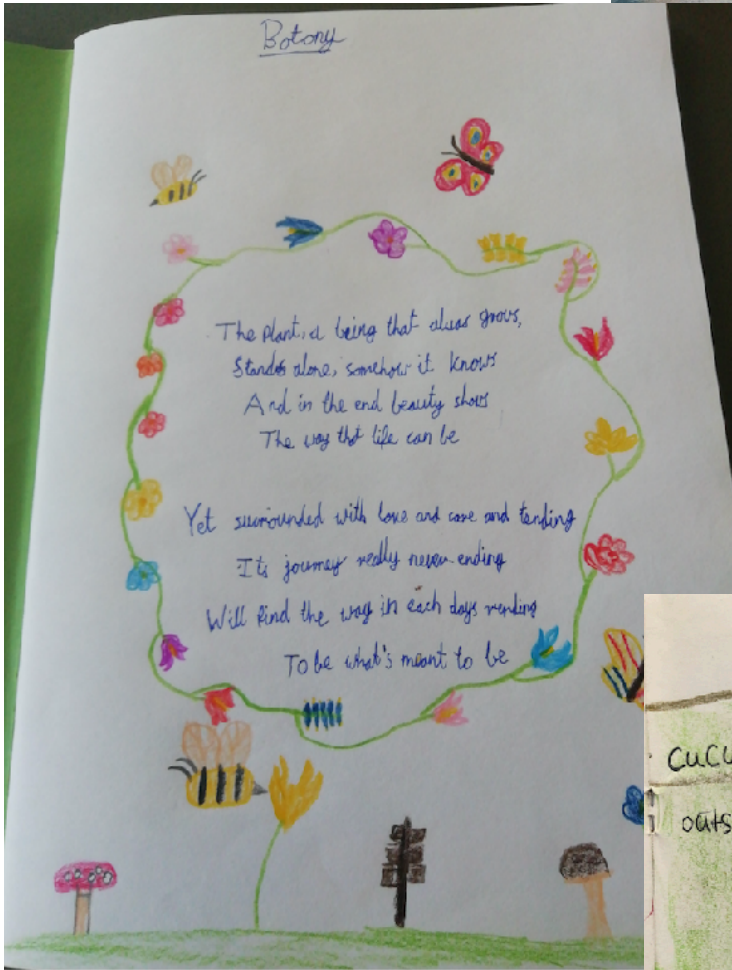 Botony
The Plant, a being that alwas grows,
Stands alone, somehow it knows
And in the end beauty shows
The way that life can be
Yet surrounded with love and care and tending
Its journey really never ending
Will find the way in each days rending
To be what's meant to be
cucu
oats